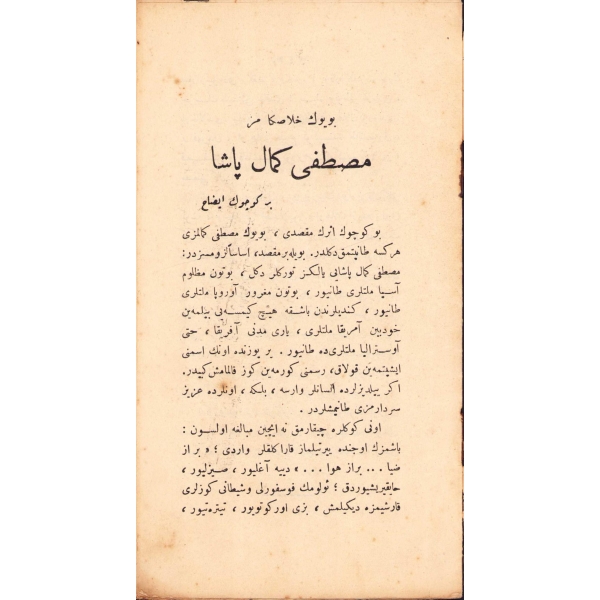 بويوك خلاصكا مز
مصطفى كمال پاشا
بر كوچوك ايضاح
بو كوچوك اثرك مقصدى ، بويوك مصطفى كمالمزى
هركسه طانيتمق دكلدر. بويله بر مقصد، اساساً لزومسزدر:
مصطفى كمال پاشايى يالكز توركلر دكل ، بوتون مظلوم
آسيا ملتلرى طانيور ، بوتون مغرور آوروپا ملتلرى
طانيور ، كنديلرندن باشقه هيچ كيمسه يى بيلمه ين
خودبين آمريقا ملتلرى ، يارى مدنى آفريقا ، حتى
آوستراليا ملتلرى ده طانيور . ير يوزنده اونك اسمنى
ايشيتمه ين قولاق، رسمنى كورمه ين كوز قالمامش كبيدر.
اكر ييلديزلرده انسانلر وارسه ، بلكه ، اونلرده عزيز
سردارمزى طانيمشلردر .
اونى كوكلره چيقارمق نه ايچين مبالغه اولسون :
باشمزك اوجنده ييرتيلماز قاراكلقلر واردى ؛ « بر از
ضيا ... بر از هوا ... » دييه آغليور ، صيزليور ،
حايقيريشيوردق ؛ ئولومك فوسفورلى و شيطانى كوزلرى
قارشيمزه ديكيلمش ، بزى اوركوتويور ، تيتره تيور ،